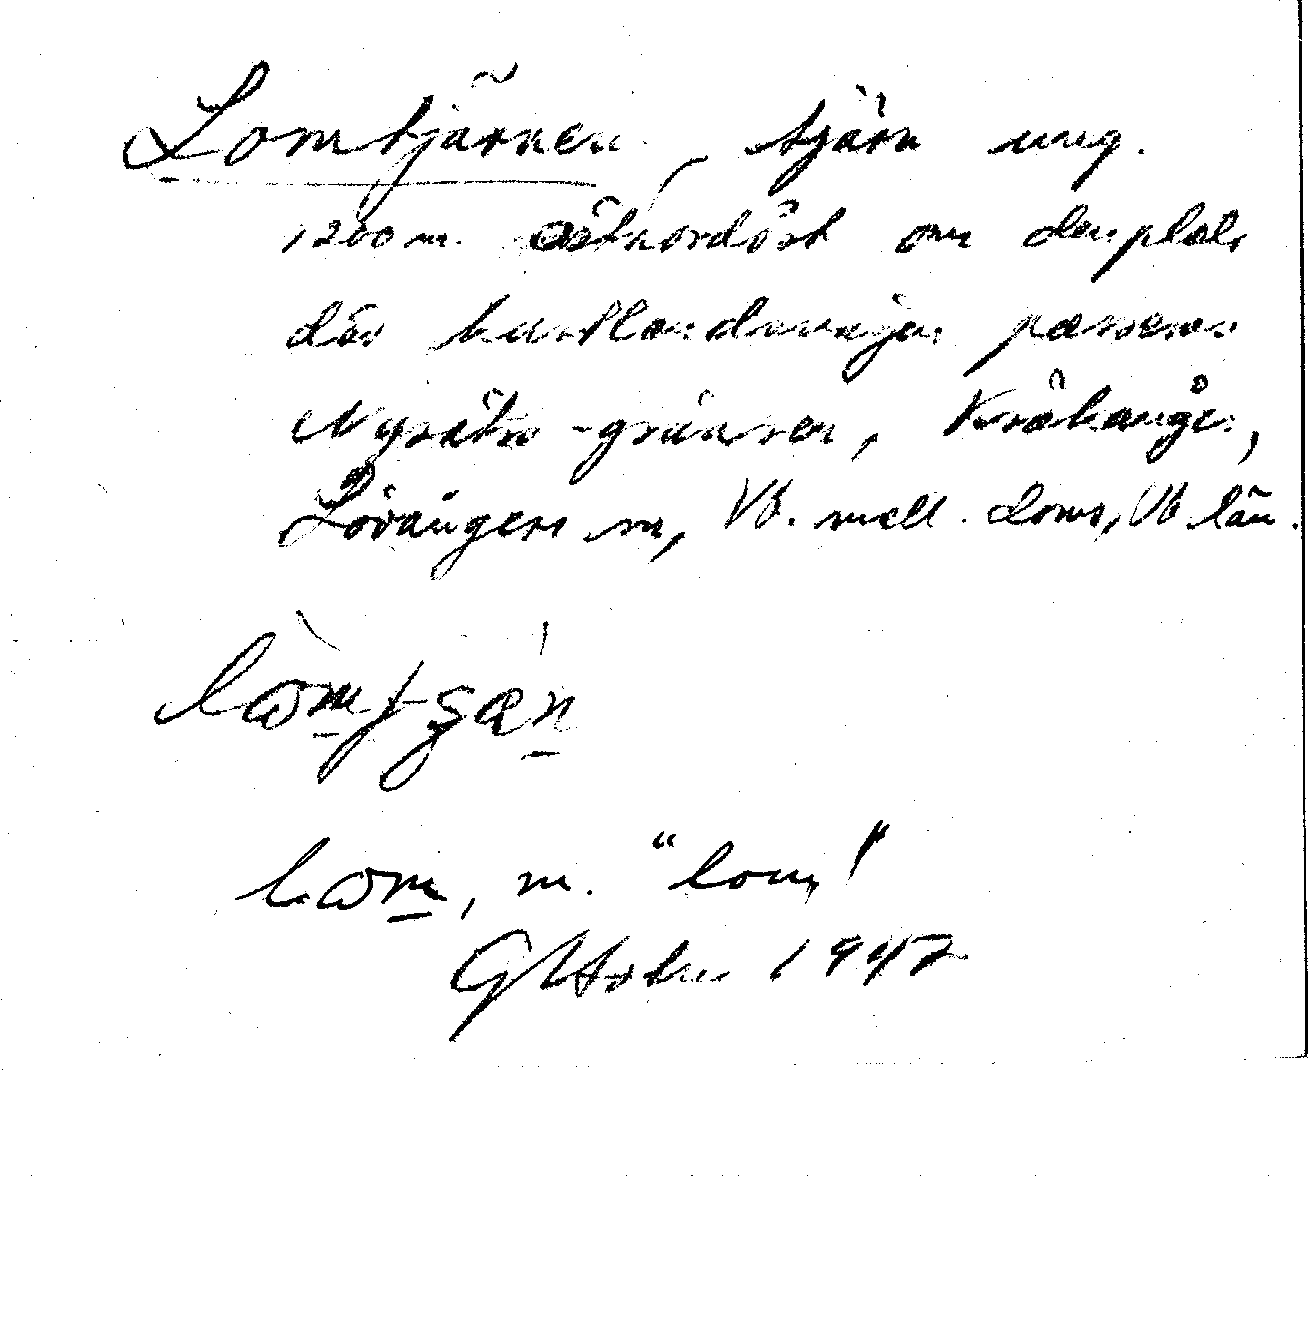 Lomtjärnen, tjärn ung.
1200 m. östnordöst om den plats
där kustlandsvägen passerar
Nysätra-gränsen, Kräkånger,
Lövångers sn, Vb. mell. doms, Vb län.
m. "lom"
1947